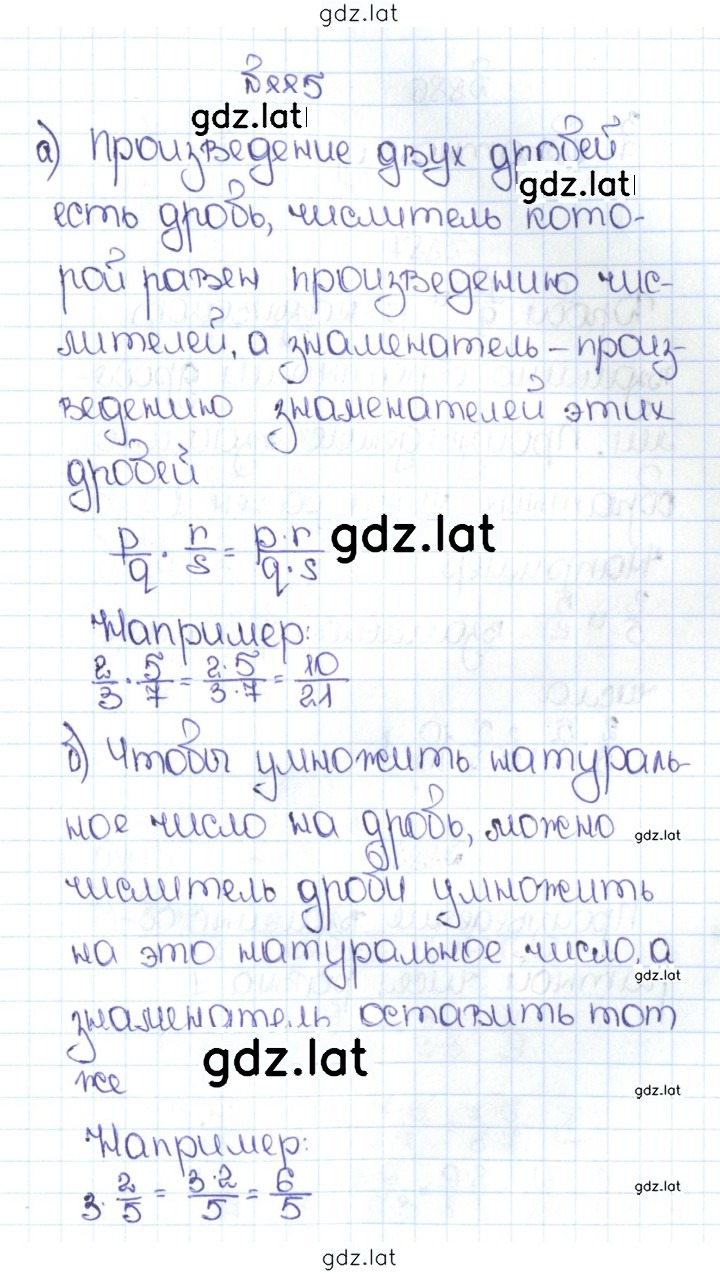 gdz.lat
№885
gdz.lat
а) Произведение двух дробей
gdz.lat
есть дробь, числитель кото-
рой равен произведению чис-
лителей, а знаменатель – произ-
ведению знаменателей этих
дробей
p/q · r/s = p·r/q·s gdz.lat
Например:
2/3 · 5/7 = 2·5/3·7 = 10/21
б) Чтобы умножить натураль-
ное число на дробь, можно gdz.lat
числитель дроби умножить
на это натуральное число, а
gdz.lat
знаменатель оставить тот
же gdz.lat gdz.lat
Например:
3 · 2/5 = 3·2/5 = 6/5 gdz.lat
gdz.lat